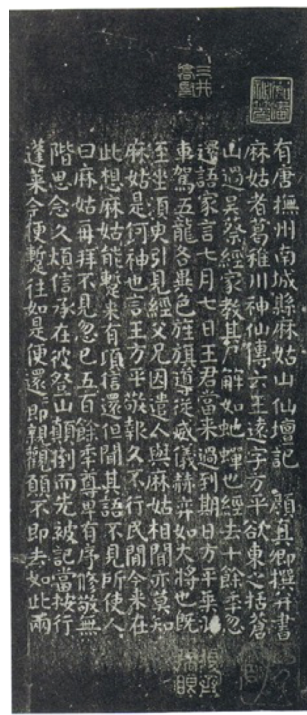 有唐撫州南城縣麻姑山仙壇記 顏真卿撰并書
麻姑者葛稚川神仙傳云王遠字方平欲東之括蒼
山過吳蔡經家教其尸解如虵蟬也經去十餘秊忽
還語家言七月七日王君當来過到期日方平乗
車駕五龍各異色旌旗導從威儀赫弈如大將也既
至坐須臾引見經父兄因遣人與麻姑相聞亦莫知
麻姑是何神也言王方平敬報久不行民間今来在
此想麻姑能蹔来有頃信還但聞其語不見所使人
曰麻姑再拜不見忽已五百餘秊尊卑有序修敬無
階思念久煩信承在彼登山顛倒而先被記當按行
蓬萊今便蹔往如是便還 即親覲願不即去如此兩